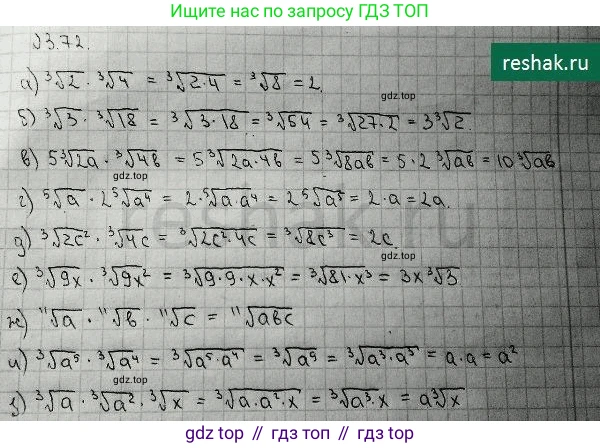 Ищите нас по запросу ГДЗ ТОП
N3.72.
reshak.ru
а) ³√2 · ³√4 = ³√(2·4) = ³√8 = 2.
gdz.top
б) ³√3 · ³√18 = ³√(3·18) = ³√54 = ³√(27·2) = 3³√2.
в) 5³√(2a) · ³√(4b) = 5³√(2a·4b) = 5³√(8ab) = 5·2³√(ab) = 10³√(ab)
gdz.top
г) ⁵√a · 2⁵√(a⁴) = 2·⁵√(a·a⁴) = 2⁵√(a⁵) = 2·a = 2a.
reshak.ru
д) ³√(2c²) · ³√(4c) = ³√(2c²·4c) = ³√(8c³) = 2c.
gdz.top
е) ³√(9x) · ³√(9x²) = ³√(9·9·x·x²) = ³√(81·x³) = 3x³√3
ж) ¹¹√a · ¹¹√b · ¹¹√c = ¹¹√(abc)
и) ³√(a⁵) · ³√(a⁴) = ³√(a⁵·a⁴) = ³√(a⁹) = ³√(a³·a³) = a·a = a²
gdz.top
gdz.top
з) ³√a · ³√(a²) · ³√x = ³√(a·a²·x) = ³√(a³·x) = a³√x
gdz top // гдз топ // gdz.top